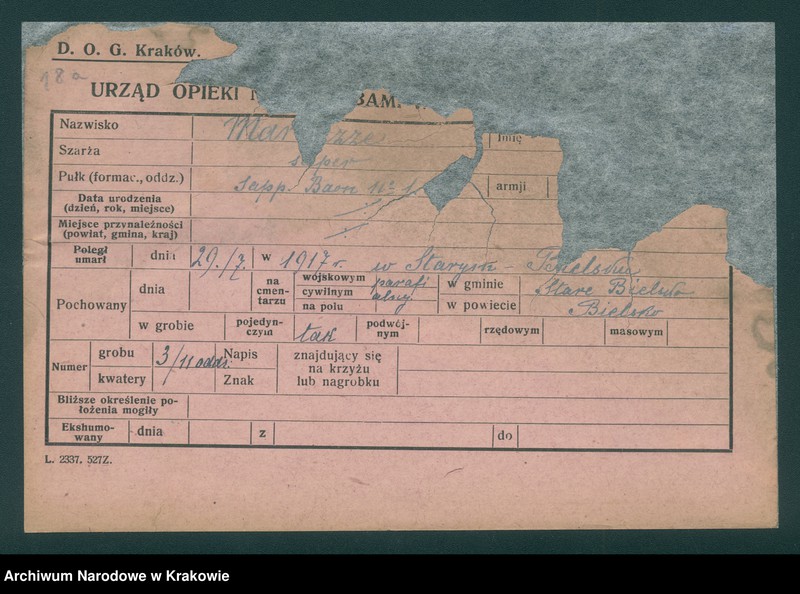 D. O. G. Kraków.
18a
URZĄD OPIEKI
Nazwisko Imię
Szarża saper
Pułk (formac., oddz.) Sapp. Baon № 1 armji
Data urodzenia
(dzień, rok, miejsce)
Miejsce przynależności
(powiat, gmina, kraj)
Poległ
umarł dnia 29./7. w 1917 r. w Starym-Bielsku
Pochowany dnia na cmen-tarzu wojskowym
cywilnym parafi
alny
na polu
w gminie Stare Bielsko
w powiecie Bielsko
w grobie pojedyn-
czym tak podwój-
nym rzędowym masowym
Numer grobu 3/11 oddz.
kwatery
Napis
Znak
znajdujący się
na krzyżu
lub nagrobku
Bliższe określenie po-
łożenia mogiły
Ekshumo-
wany dnia z do
L. 2337. 527Z.
Archiwum Narodowe w Krakowie